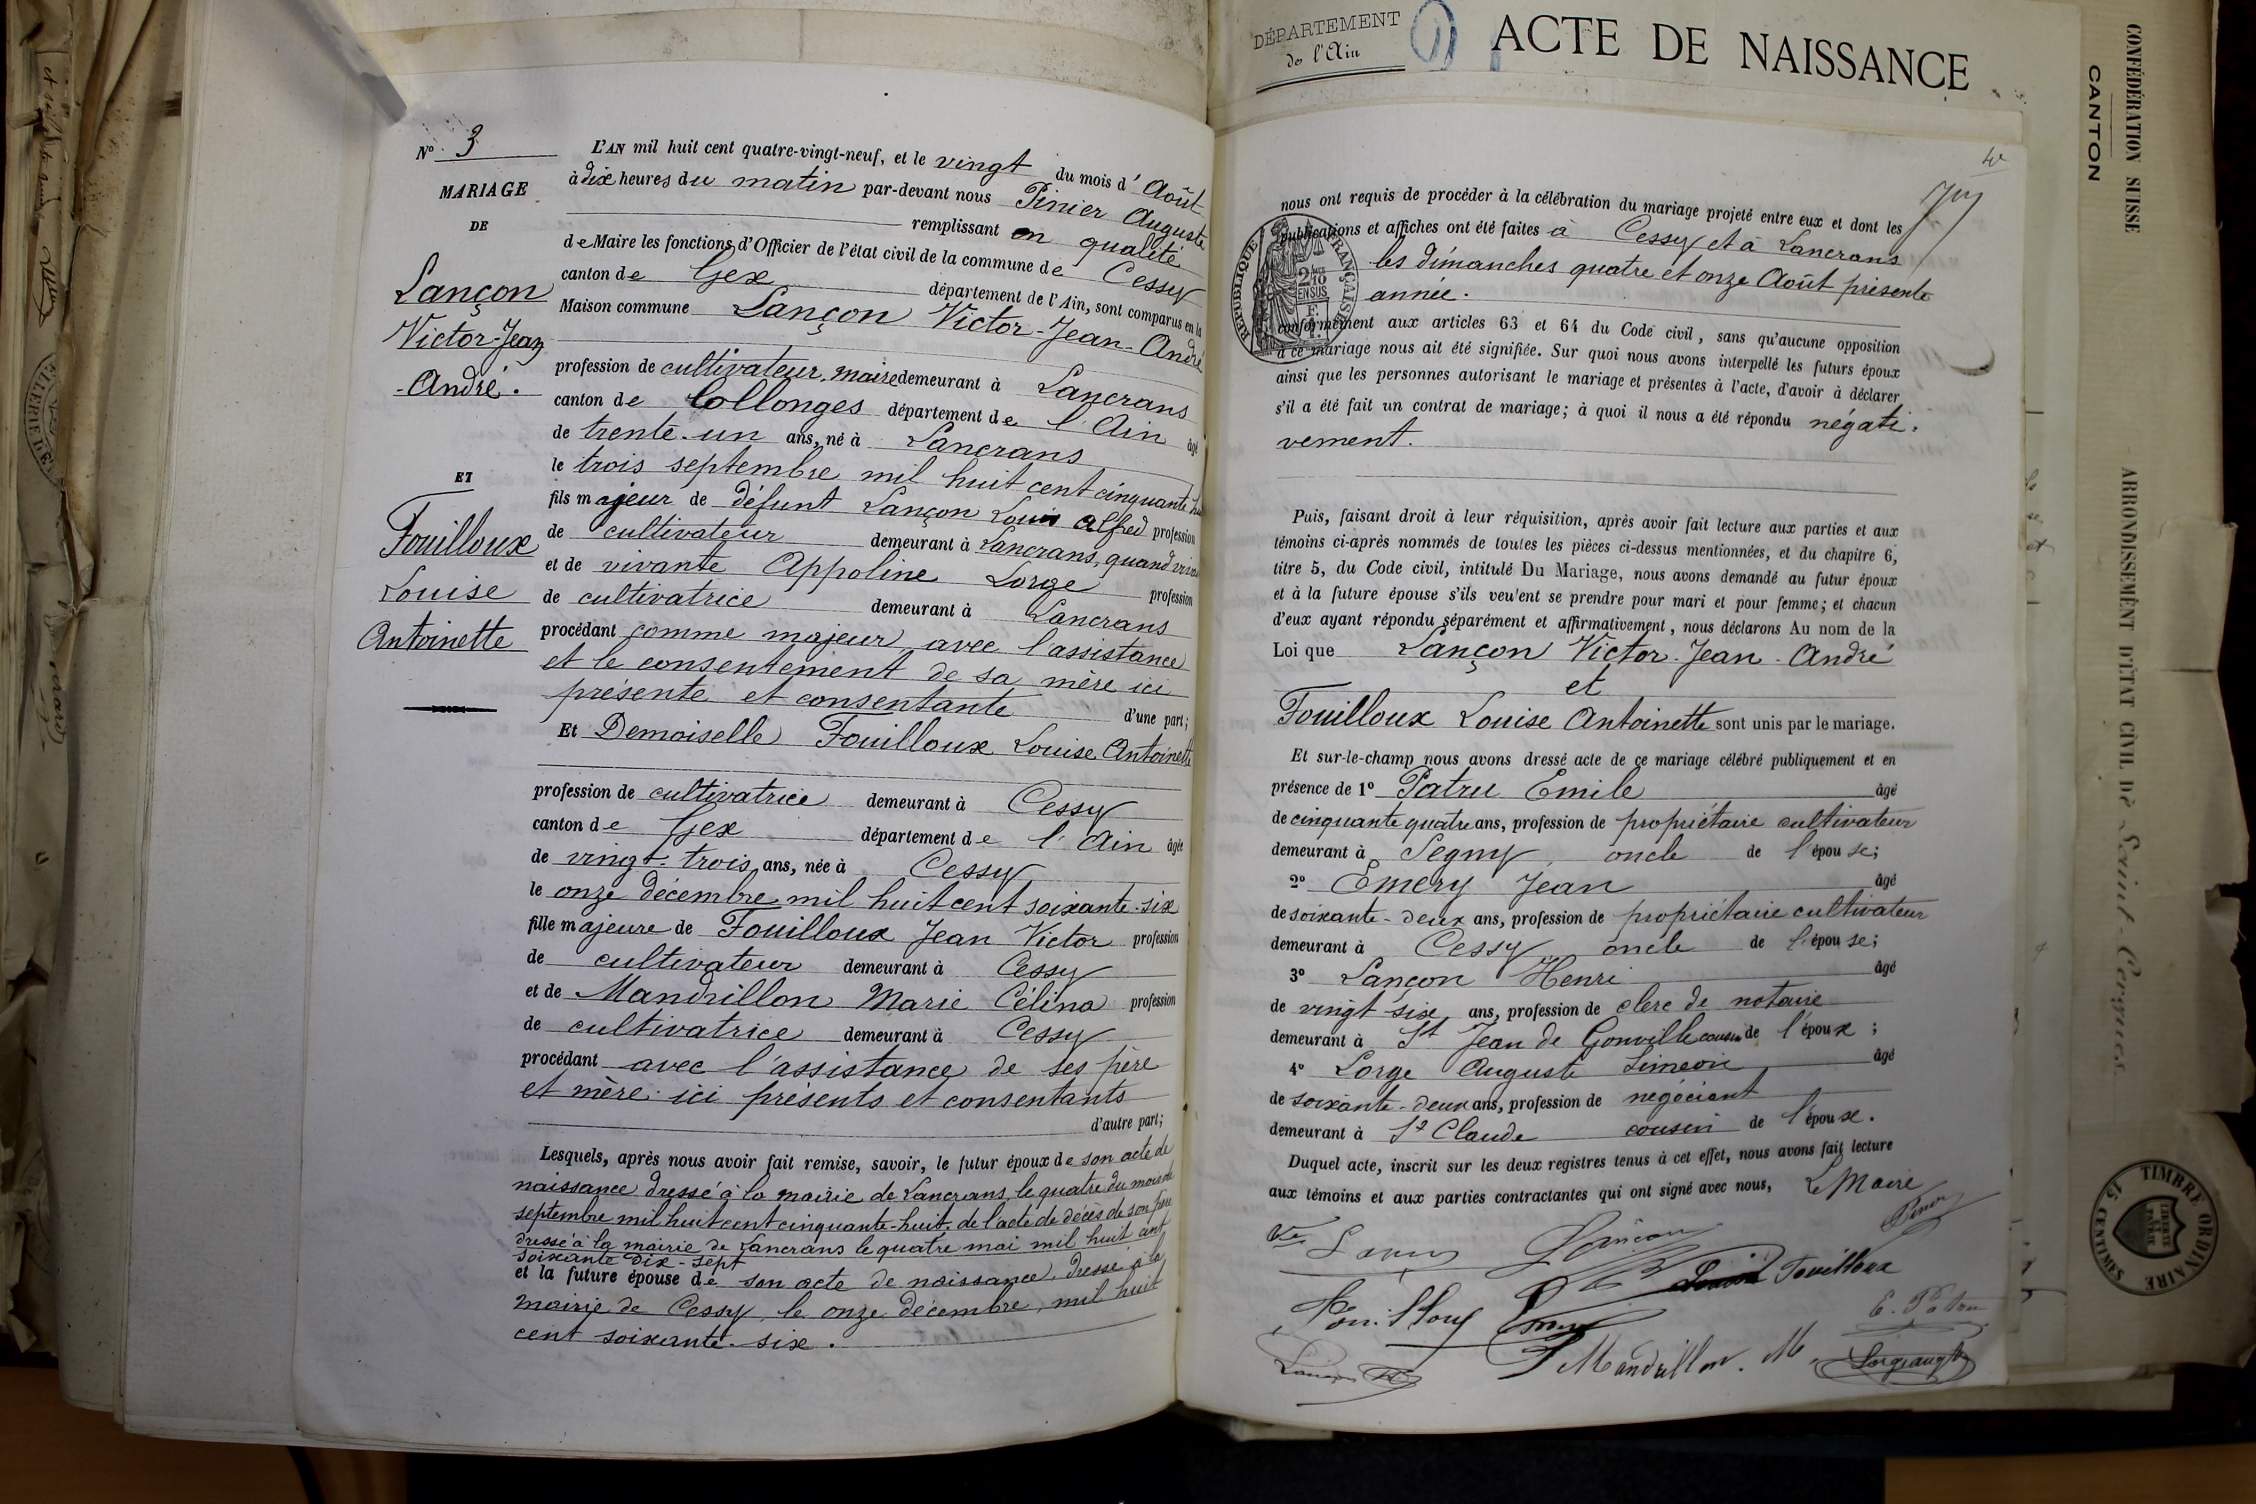 Nº 3
MARIAGE
DE
Lançon
Victor-Jean
-André.
ET
Fouilloux
Louise
Antoinette
L'AN mil huit cent quatre-vingt-neuf, et le vingt du mois d'Août
à dix heures du matin par-devant nous Pinier Auguste
remplissant en qualité
de Maire les fonctions d'Officier de l'état civil de la commune de Cessy
canton de Gex département de l'Ain, sont comparus en la
Maison commune Lançon Victor-Jean-André
profession de cultivateur, maire demeurant à Lancrans
canton de Collonges département de l'Ain âgé
de trente-un ans, né à Lancrans
le trois septembre mil huit cent cinquante huit
fils majeur de défunt Lançon Louis Alfred profession
de cultivateur demeurant à Lancrans, quand vivait
et de vivante Appoline Lorge profession
de cultivatrice demeurant à Lancrans
procédant comme majeur avec l'assistance
et le consentement de sa mère ici
présente et consentante d'une part;
Et Demoiselle Fouilloux Louise Antoinette
profession de cultivatrice demeurant à Cessy
canton de Gex département de l'Ain âgée
de vingt-trois ans, née à Cessy
le onze décembre mil huit cent soixante-six
fille majeure de Fouilloux Jean Victor profession
de cultivateur demeurant à Cessy
et de Mandrillon Marie Célina profession
de cultivatrice demeurant à Cessy
procédant avec l'assistance de ses père
et mère ici présents et consentants
d'autre part;
Lesquels, après nous avoir fait remise, savoir, le futur époux de son acte de
naissance dressé à la mairie de Lancrans, le quatre du mois de
septembre mil huit cent cinquante-huit, de l'acte de décès de son père
dressé à la mairie de Lancrans le quatre mai mil huit cent
soixante dix-sept
et la future épouse de son acte de naissance, dressé à la
mairie de Cessy, le onze décembre, mil huit
cent soixante-six.
DÉPARTEMENT
de l'Ain
ACTE DE NAISSANCE
nous ont requis de procéder à la célébration du mariage projeté entre eux et dont les
publications et affiches ont été faites à Cessy et à Lancrans
les dimanches quatre et onze Août présente
année.
RÉPUBLIQUE FRANÇAISE
conformément aux articles 63 et 64 du Code civil, sans qu'aucune opposition
à ce mariage nous ait été signifiée. Sur quoi nous avons interpellé les futurs époux
ainsi que les personnes autorisant le mariage et présentes à l'acte, d'avoir à déclarer
s'il a été fait un contrat de mariage; à quoi il nous a été répondu négati-
vement.
Puis, faisant droit à leur réquisition, après avoir fait lecture aux parties et aux
témoins ci-après nommés de toutes les pièces ci-dessus mentionnées, et du chapitre 6,
titre 5, du Code civil, intitulé Du Mariage, nous avons demandé au futur époux
et à la future épouse s'ils veulent se prendre pour mari et pour femme; et chacun
d'eux ayant répondu séparément et affirmativement, nous déclarons Au nom de la
Loi que Lançon Victor-Jean-André
et
Fouilloux Louise Antoinette sont unis par le mariage.
Et sur-le-champ nous avons dressé acte de ce mariage célébré publiquement et en
présence de 1º Patru Emile âgé
de cinquante quatre ans, profession de propriétaire cultivateur
demeurant à Segny, oncle de l'épouse;
2º Emery Jean âgé
de soixante-deux ans, profession de propriétaire cultivateur
demeurant à Cessy oncle de l'épouse;
3º Lançon Henri âgé
de vingt six ans, profession de clerc de notaire
demeurant à St Jean de Gonville cousin de l'époux;
4º Lorge Auguste Simeon âgé
de soixante-deux ans, profession de négociant
demeurant à St Claude cousin de l'époux.
Duquel acte, inscrit sur les deux registres tenus à cet effet, nous avons fait lecture
aux témoins et aux parties contractantes qui ont signé avec nous, Le Maire
Lançon
Fouilloux
E. Patru
Mandrillon. M.
CONFÉDÉRATION SUISSE
CANTON
ARRONDISSEMENT D'ÉTAT CIVIL DE Saint-Cergues
TIMBRE ORDINAIRE
15 CENTIMES